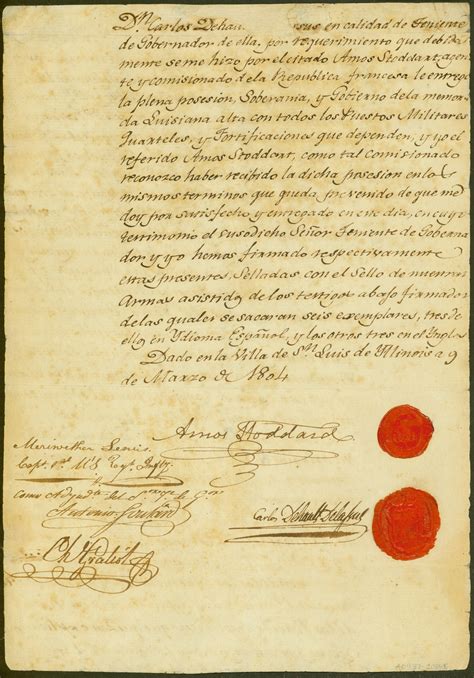 Dn. Carlos Dehau sus en calidad de Teniente
de Gobernador de ella, por requerimiento que debida
mente se me hizo por el citado Amos Stoddart, agen
te y comisionado de la Republica francesa le entregé
la plena posesión, Soberania, y Gobierno de la memora
da Luisiana alta con todos los Puestos Militares
Quarteles, y Fortificaciones que dependen, y yo el
referido Amos Stoddart, como tal Comisionado
reconozco haber recibido la dicha posesion en lo
mismos terminos que queda prevenido de que me
doy por satisfecho y entregado en este dia, en cuyo
testimonio el susodicho Señor Teniente de Goberna
dor y yo hemos firmado respectivamente
estas presentes, Selladas con el Sello de nuestras
Armas asistido de los testigos abajo firmados
de las quales se sacaran seis exemplares, tres de
ellos en Ydioma Español, y los otros tres en el Yngles
Dado en la Villa de Sn. Luis de Yllinois a 9
de Marzo de 1804
Amos Stoddard
Meriwether Lewis
Capt. 1st. U'S Regt. Infty.
Como
Antonio Soulard
Carlos Dehault Delassus
Ch Gratiot